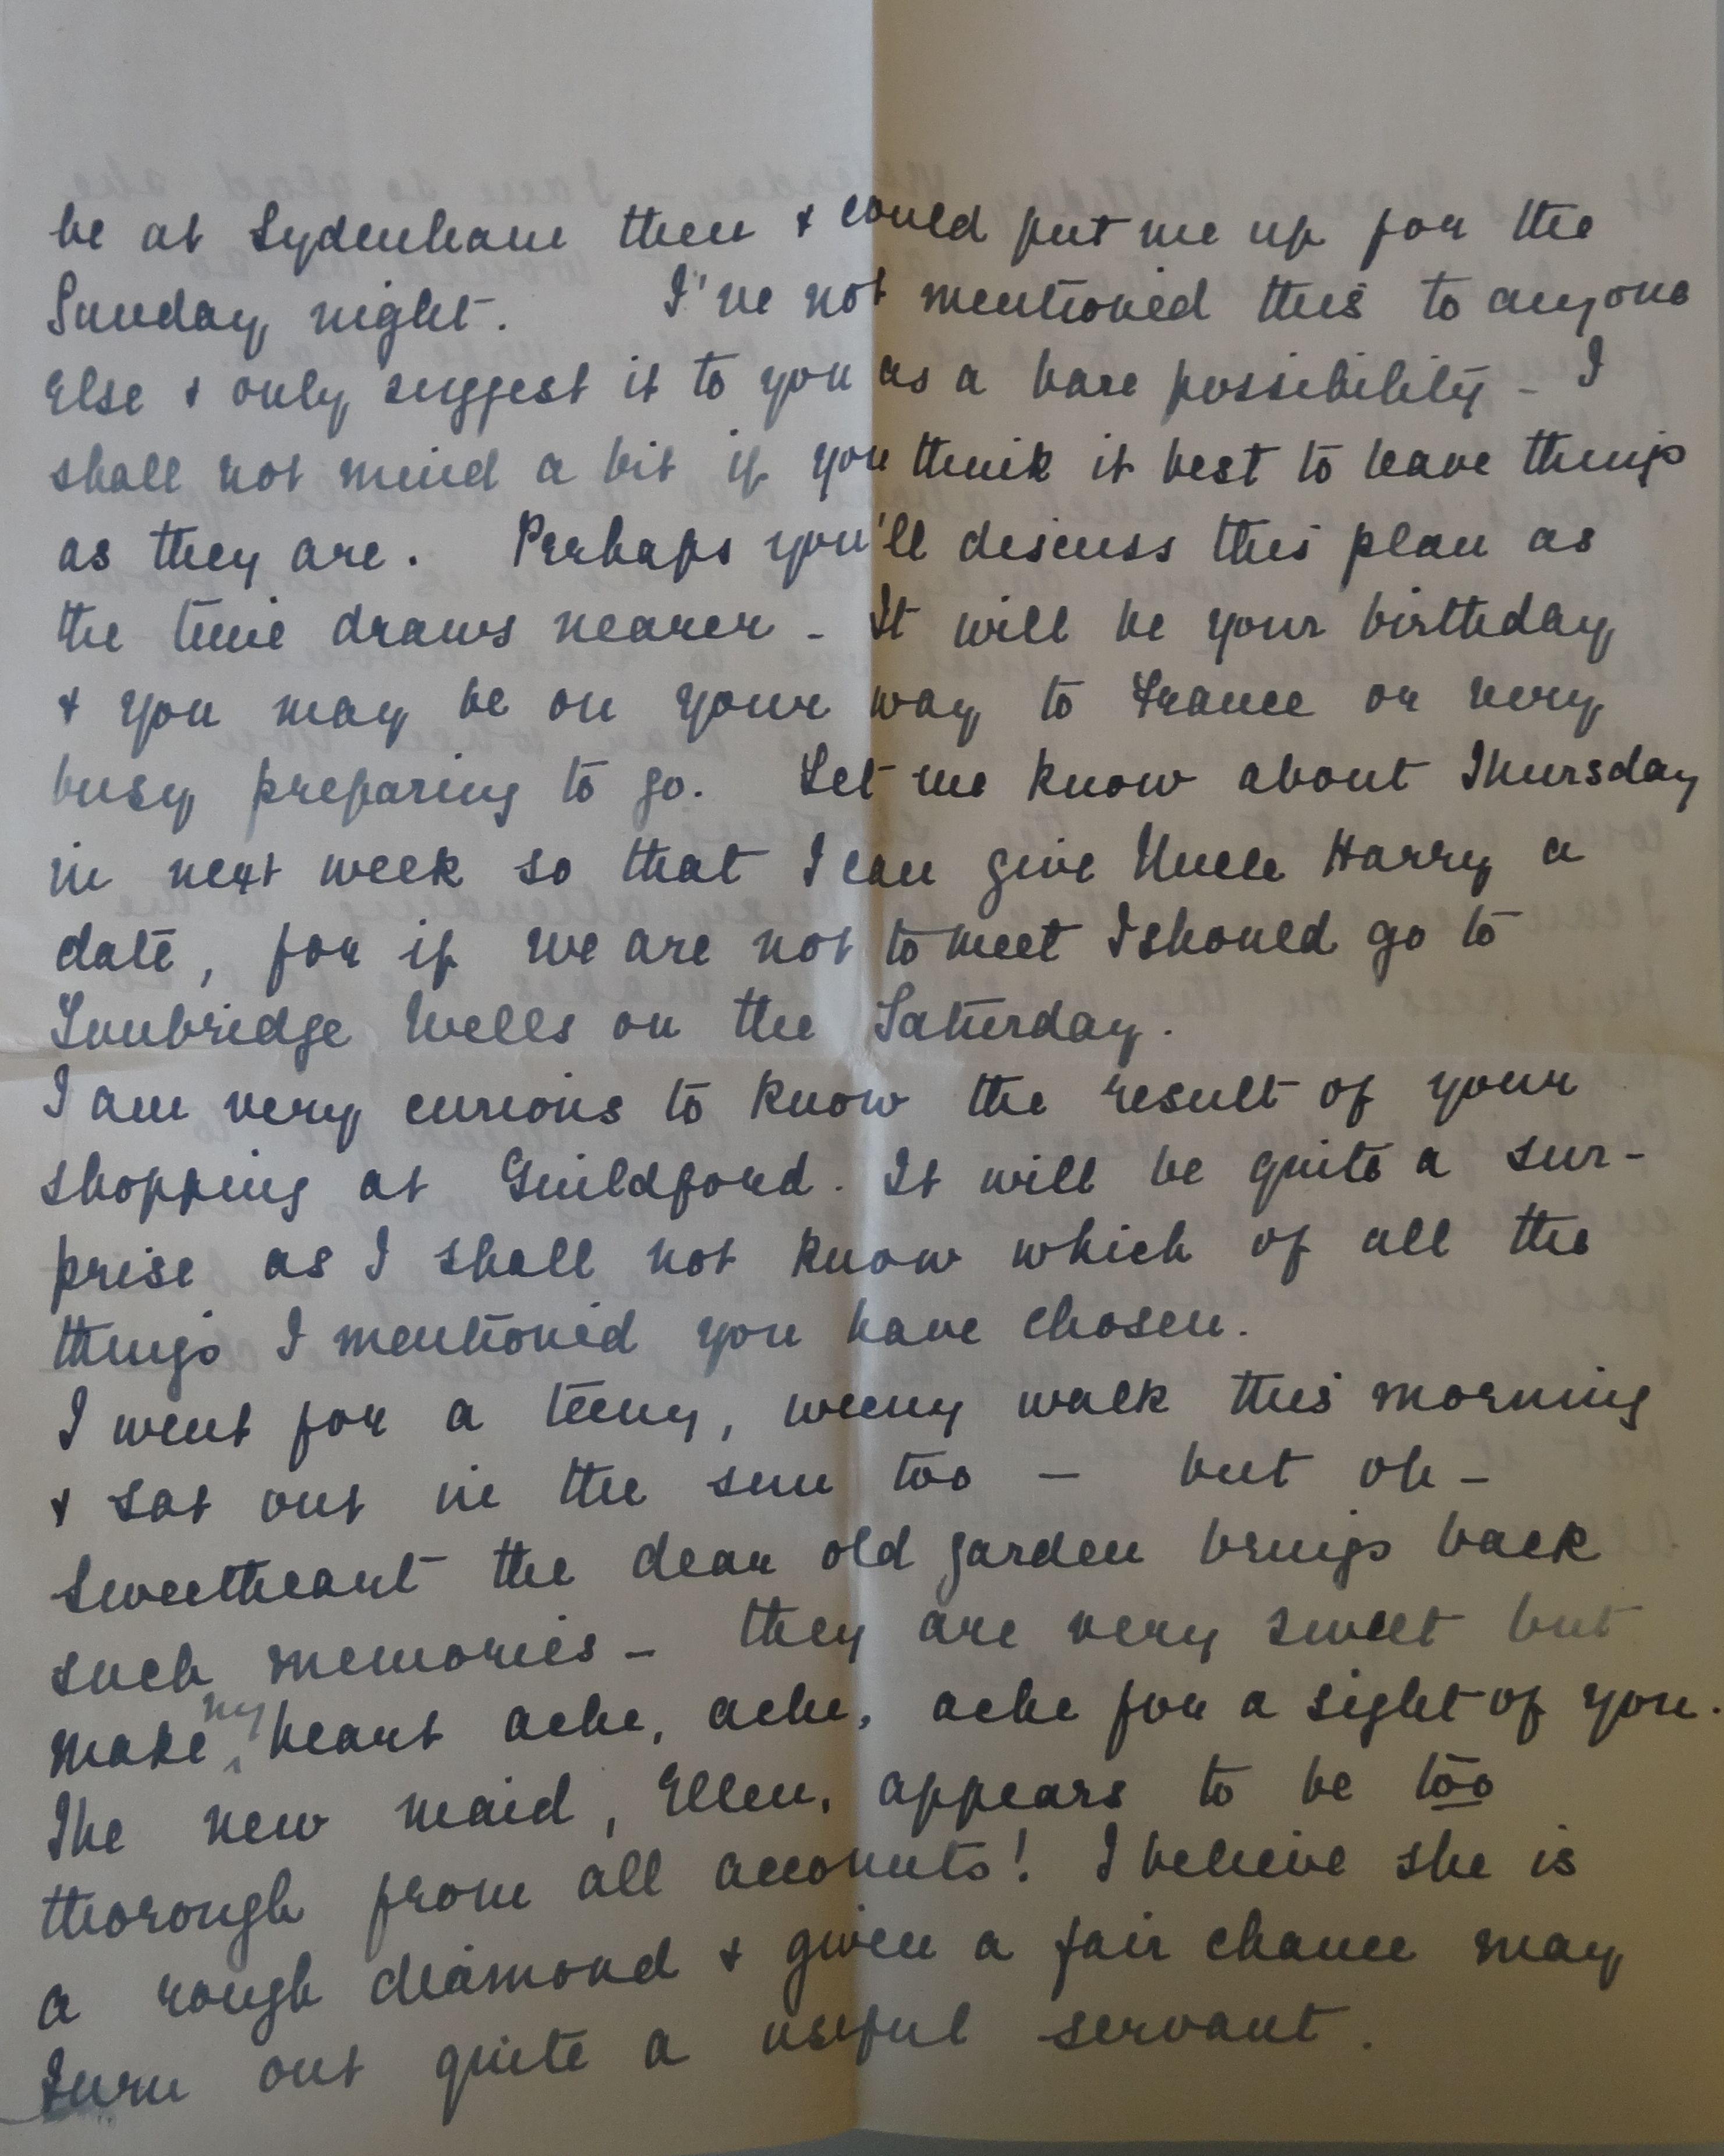 be at Sydenham then & could put me up for the
Sunday night. I've not mentioned this to anyone
Else & only suggest it to you as a bare possibility - I
shall not mind a bit if you think it best to leave things
as they are. Perhaps you'll discuss this plan as
the time draws nearer - It will be your birthday
& you may be on your way to France or very
busy preparing to go. Let me know about Thursday
in next week so that I can give Uncle Harry a
date, for if we are not to meet I should go to
Tunbridge Wells on the Saturday.
I am very curious to know the result of your
shopping at Guildford. It will be quite a sur-
prise as I shall not know which of all the
things I mentioned you have chosen.
I went for a teeny, weeny walk this morning
& sat out in the sun too - but oh -
Sweetheart the dear old garden brings back
such memories - they are very sweet but
make my heart ache, ache, ache for a sight of you.
The new maid, Ellen, appears to be too
thorough from all accounts! I believe she is
a rough diamond & given a fair chance may
turn out quite a useful servant.